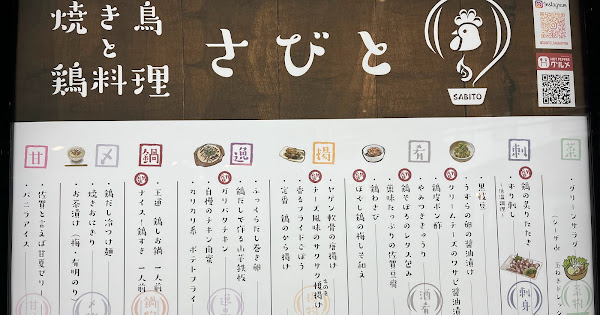 焼き鳥
と
鶏料理
さびと
SABITO
Instagram
HOT PEPPER
グルメ
菜
・グリーンサラダ
刺
・鶏の炙りたたき
・ずり刺し
肴
・黒枝豆
・うずらの卵の醤油漬け
・クリームチーズのワサビ醤油漬け
・鶏皮ポン酢
・やみつききゅうり
・鶏そぼろのレタス包み
・薫味たっぷりの佐賀豆腐
・鶏わさび
・ほぐし鶏の梅しそ和え
揚
・ヤゲン軟骨の唐揚げ
・チーズ風味のササミ磯辺揚げ
・香るフライドごぼう
・定番 鶏のから揚げ
逸
・ふっくらだし巻き卵
・鶏だしで作る山芋鉄板
・ガリバタチキン
・自慢のチキン南蛮
・カリカリ系 ポテトフライ
鍋
・王道 鶏しお鍋 一人前
・ナイス・鶏すき 一人前
〆
・鶏だし冷つけ麺
・焼きおにぎり
・お茶漬け(梅・有明のり)
甘
・佐賀と言えば甘夏ゼリー
・バニラアイス
刺身
酒肴